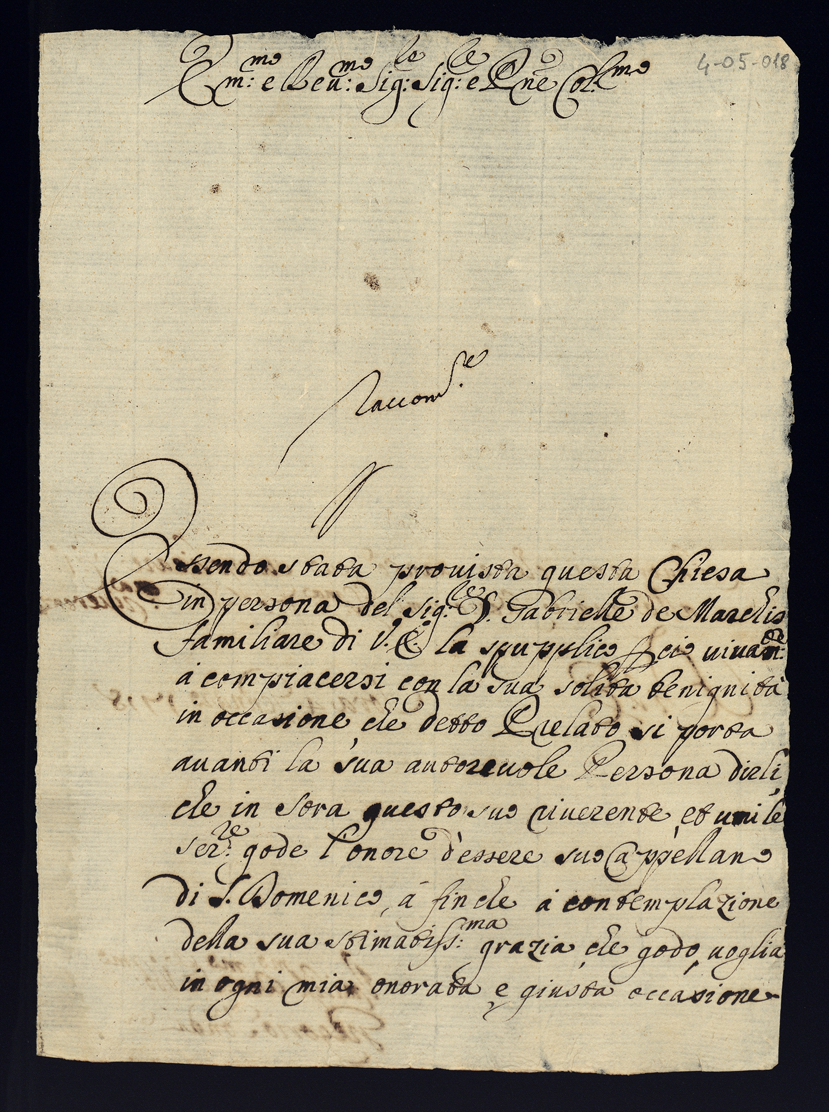 4-05-018
Em:mo e Reu:mo Sig:re Sig:re e Pne Col:mo
Raccom.re
Essendo stata prouista questa Chiesa
in persona del Sig:re D. Gabrielle de Marchis
familiare di V. E. la supplico per ciò viuam:te
à compiacersi con la sua solita benignità
in occasione che detto Prelato si porta
auanti la sua autoreuole Persona dirli
che in Sora questo suo riuerente et umile
ser:re gode l'onore d'essere suo Cappellano
di S. Domenico, à fin che à contemplazione
della sua stimatiss:ma grazia che godo, uoglia
in ogni mia onorata e giusta occasione